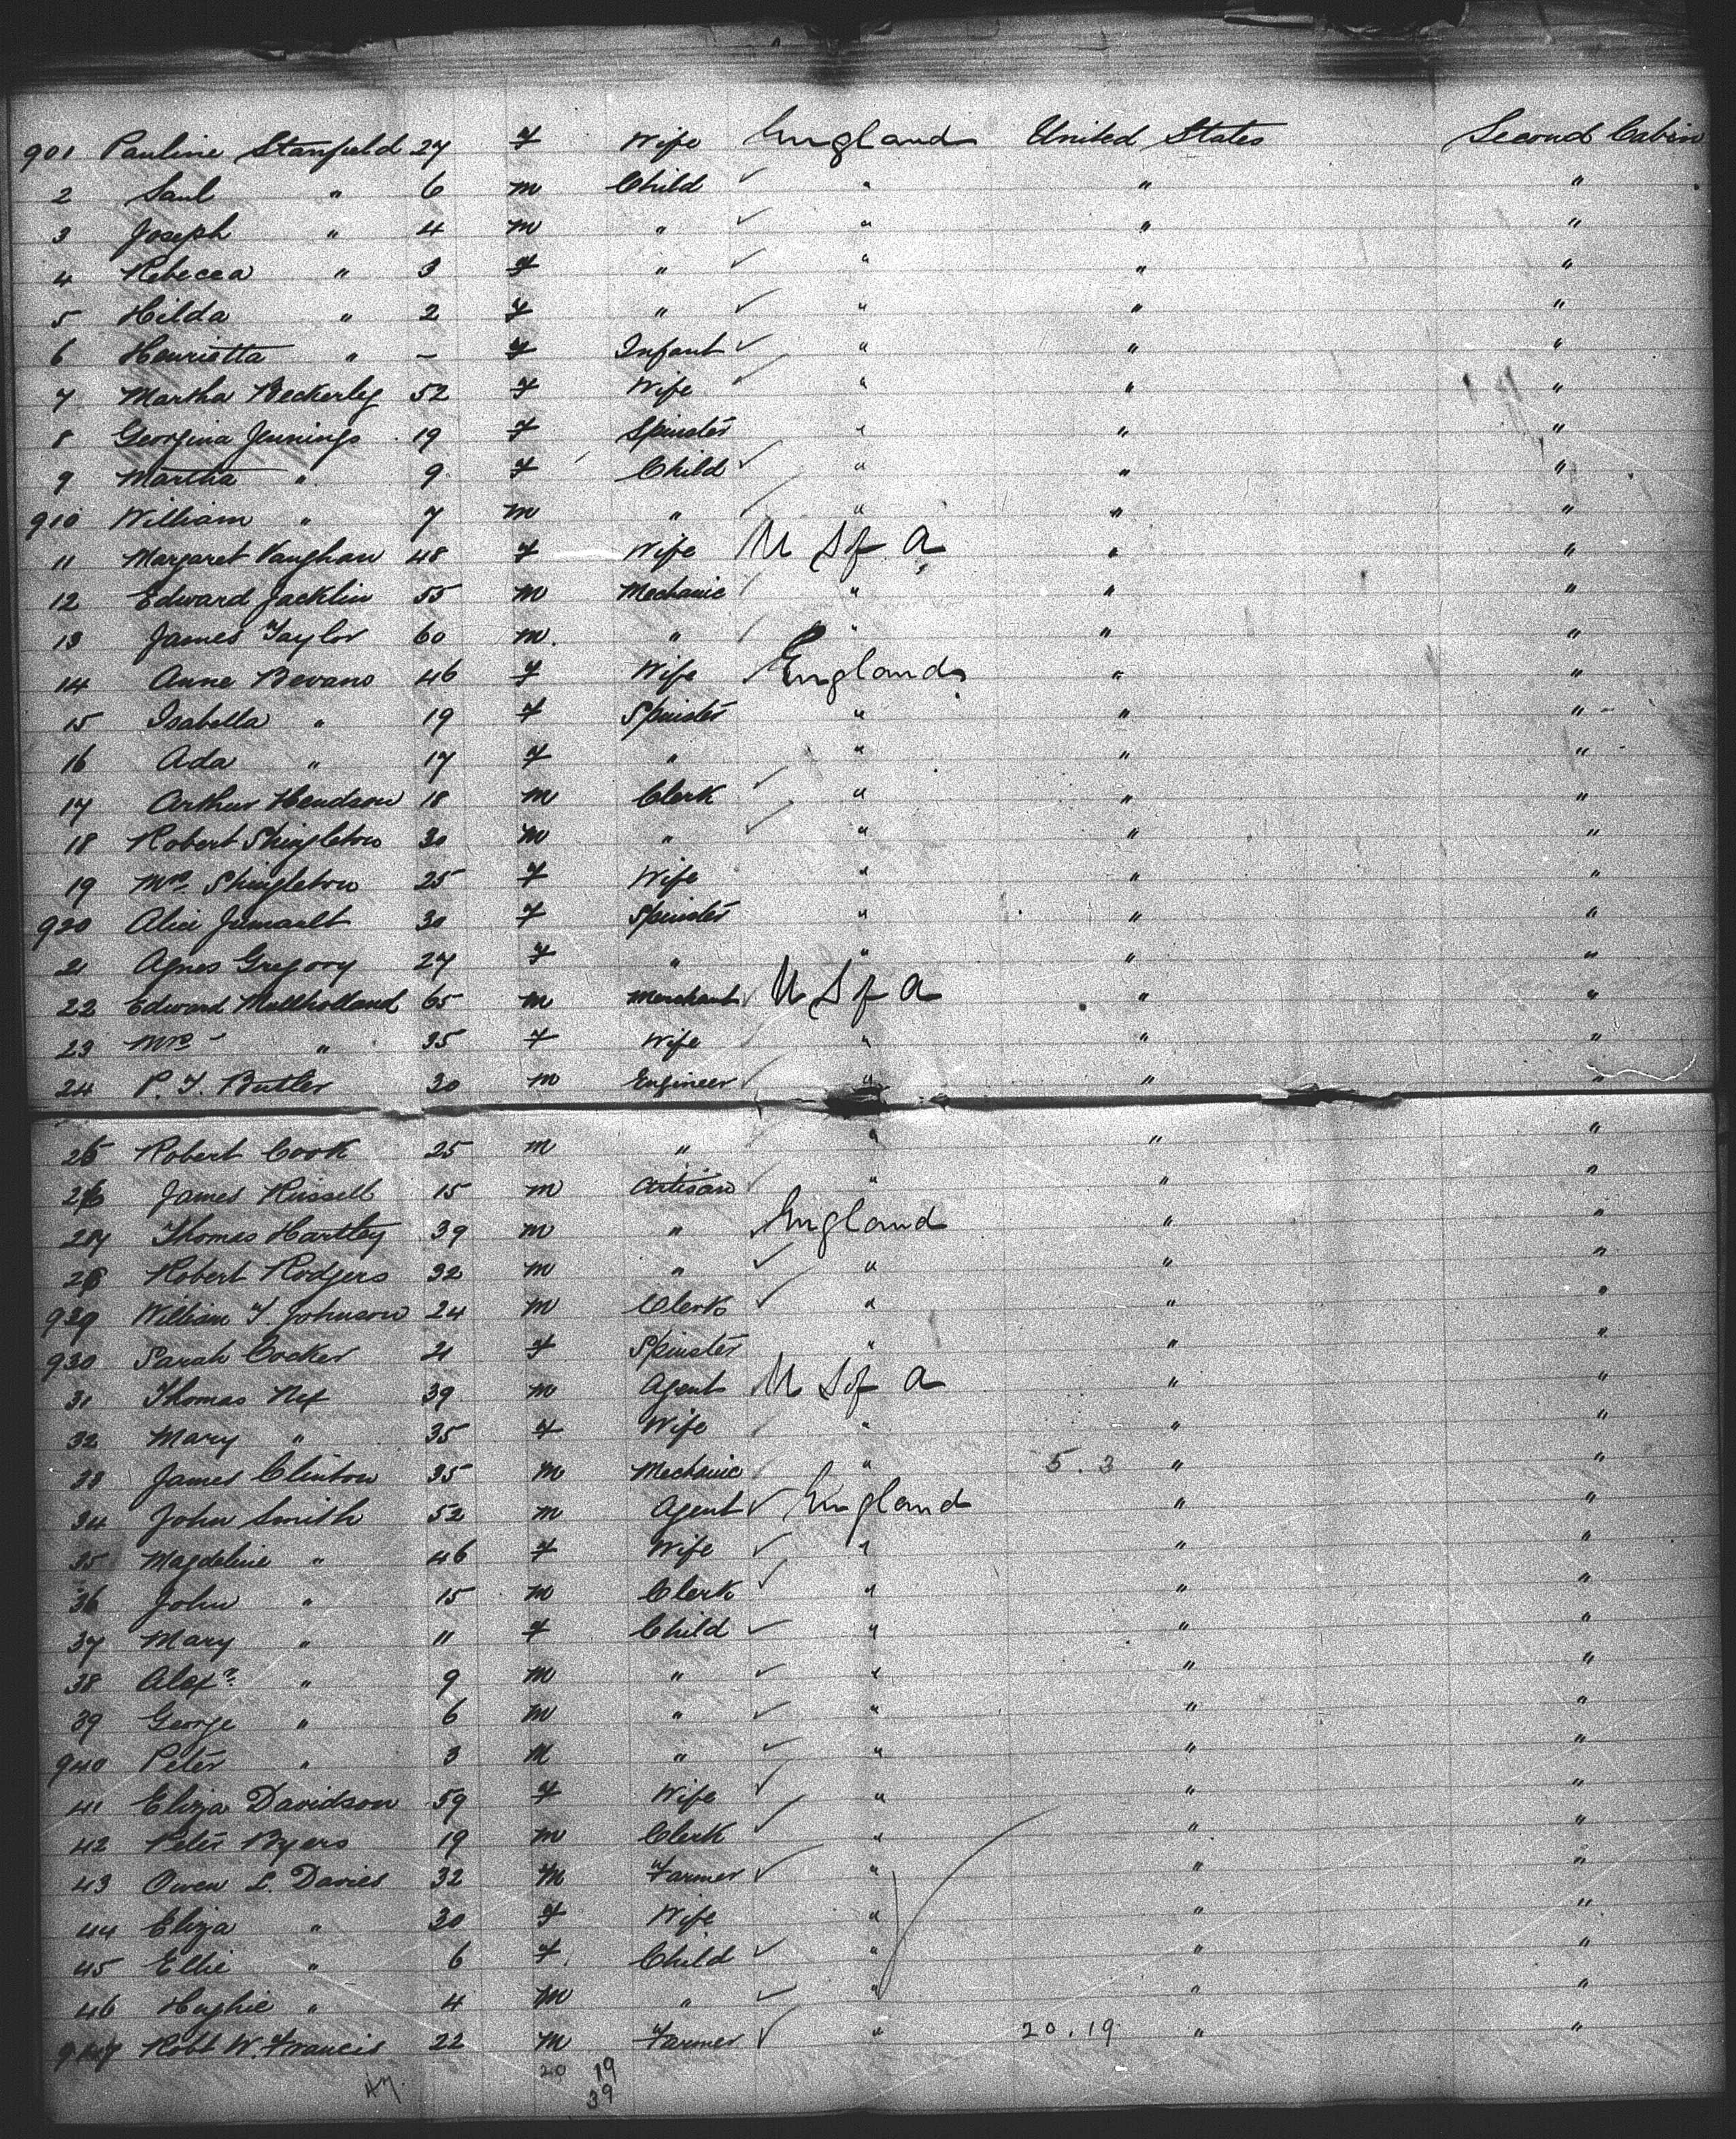 901 Pauline Stanfield 27 F Wife England United States Second Cabin
2 Saul " 6 M Child " " "
3 Joseph " 4 M " " " "
4 Rebecca " 3 F " " " "
5 Hilda " 2 F " " " "
6 Henrietta " - F Infant " " "
7 Martha Beckerley 52 F Wife " " "
8 Georgina Jennings 19 F Spinster " " "
9 Martha " 9 F Child " " "
910 William " 7 M " " " "
11 Margaret Vaughan 48 F Wife U S of A " "
12 Edward Jacklin 55 M Mechanic " " "
13 James Taylor 60 M. " " " "
14 Anne Bevans 46 F Wife England " "
15 Isabella " 19 F Spinster " " "
16 Ada " 17 F " " " "
17 Arthur Hendson 18 M Clerk " " "
18 Robert Shingleton 30 M " " " "
19 Mrs. Shingleton 25 F Wife " " "
920 Alice 30 F Spinster " " "
21 Agnes Gregory 27 F " " " "
22 Edward Mullholland 65 M Merchant U S of A " "
23 Mrs " 35 F Wife " " "
24 P. T. Butler 30 M Engineer " " "
25 Robert Cook 25 M " " " "
26 James Russell 15 M Artisan " " "
27 Thomas Hartley 39 M " England " "
28 Robert Rodgers 32 M " " " "
929 William T. Johnson 24 M Clerk " " "
930 Sarah Cocker 21 F Spinster " " "
31 Thomas Nex 39 M Agent U S of A " "
32 Mary " 35 F Wife " " "
33 James Clinton 35 M Mechanic " 5.3 " "
34 John Smith 52 M Agent England " "
35 Magdeline " 46 F Wife " " "
36 John " 15 M Clerk " " "
37 Mary " 11 F Child " " "
38 Alexr. " 9 M " " " "
39 George " 6 M " " " "
940 Peter " 3 M " " " "
41 Eliza Davidson 59 F Wife " " "
42 Peter Byers 19 M Clerk " " "
43 Owen L. Davies 32 M Farmer " " "
44 Eliza " 30 F Wife " " "
45 Ellie " 6 F. Child " " "
46 Hughie " 4 M " " " "
947 Robt W. Francis 22 M Farmer " 20.19 " "
47. 20 19
39